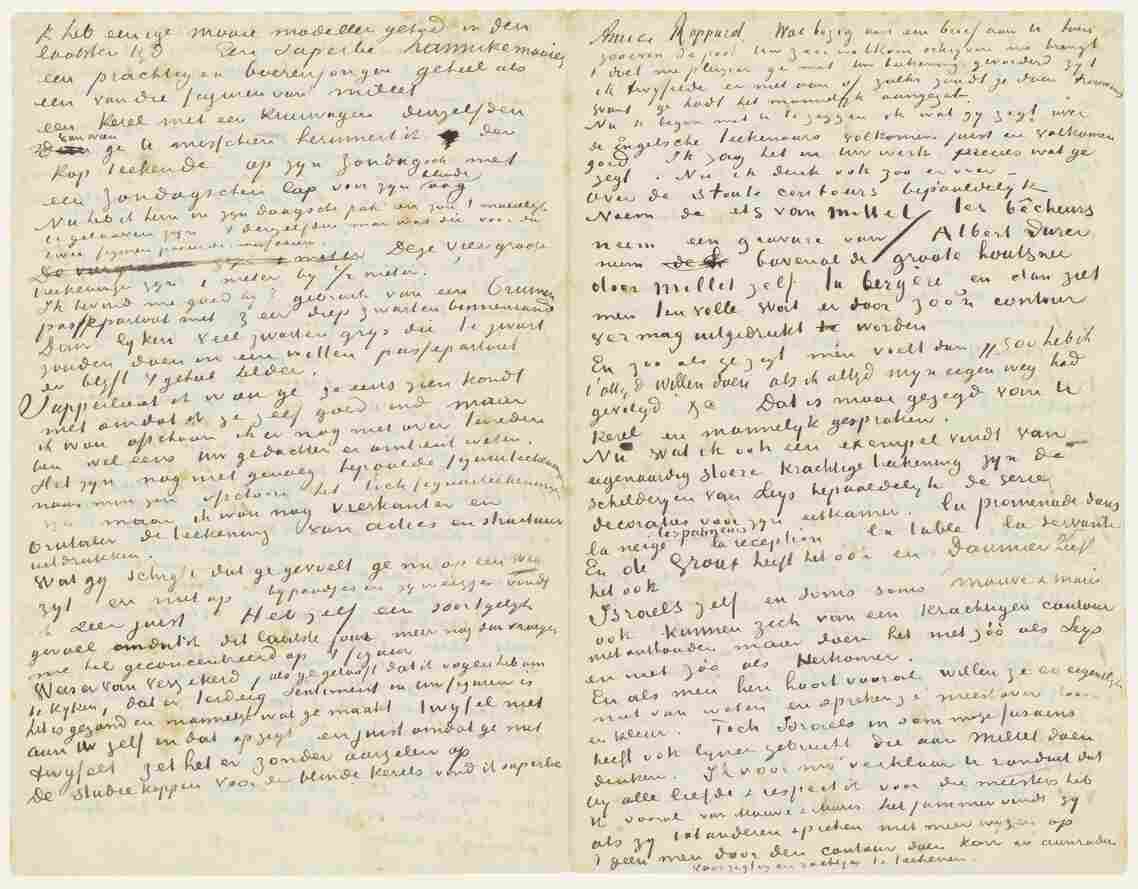 Ik heb eenige mooie modellen gehad in den
laatsten tijd. Een superbe
een prachtigen boerenjongen geheel als
een van die figuren van Millet
een kerel met een kruiwagen denzelfden
waarvan ge U misschien herinnert ik den
kop teekende op zyn zondagsch met
een zondagschen lap voor zyn blinde oog
Nu heb ik hem in zyn daagsch pak en zou't moeielyk
te gelooven zyn 't denzelfden man was die voor de
twee figuren poseerde
Deze vier groote
teekeningen zyn 1 meter by 1/2 meter.
Ik bevind me goed by 't gebruik van een bruinen
passepartout met zeer diep zwarten binnenrand
Dan lyken veel zwarten grys die te zwart
zouden doen in een witten passepartout
en blyft 't geheel helder.
Sapperlaot ik wou ge ze eens zien kondt
niet omdat ik ze zelf goed vind maar
ik wou ofschoon ik er nog niet over tevreden
ben wel eens Uw gedachten er omtrent weten.
Het zyn nog niet genoeg bepaalde figuurteekeningen
naar myn zin ofschoon het toch figuurteekeningen
zyn maar ik wou nog vierkanter en
brutaler de teekening van acties en structuur
uitdrukken.
Wat gy schryft dat ge gevoelt ge nu op een weg
zyt en niet op bypaadjes en zywegen vond
ik zeer juist. Heb zelf een soortgelyk
gevoel omdat ik dit laatste jaar meer nog dan vroeger
me heb geconcentreerd op 't figuur
Wees ervan verzekerd, als ge gelooft dat ik oogen heb om
te kyken, dat er terdeeg sentiment in uw figuren is
het is gezond en mannelyk wat ge maakt twyfel niet
aan U zelf in dat opzigt en juist omdat ge niet
twyfelt zet het er zonder aarzelen op
De studie koppen voor de blinde kerels vind ik superbe
Amice Rappard. Was bezig aan een brief aan U toen
zooeven de post Uw zeer welkom schryven me brengt
't doet me pleizier ge met Uw teekening gevorderd zyt
ik twyfelde er niet aan of zulks zoudt ge doen trouwens
want ge hadt het mannelyk aangepakt.
Nu te beginnen met U te zeggen ik wat gy zegt over
de Engelsche teekenaars volkomen juist en volkomen
goed Ik zag het in Uw werk precies wat ge
zegt. Nu ik denk ook zoo er over —
Over de stoute contours bepaaldelyk
Neem de ets van Millet / les bêcheurs
neem een gravure van Albert Durer
neem bovenal de groote houtsnee
door Millet zelf la bergère en dan ziet
men ten volle wat er door zoo'n contour
vermag uitgedrukt te worden
En zoo als ge zegt men voelt dan "zoo heb ik
't altyd willen doen als ik altyd myn eigen weg had
gevolgd" &c. Dat is mooi gezegd van U
kerel en mannelyk gesproken.
Nu wat ik ook een exempel vindt van
eigenaardig stoere krachtige teekening zyn de
schilderyen van Leys bepaaldelyk de serie
decoraties voor zyn eetkamer. la promenade dans
la neige les patineurs la réception la table la servante
En de Groux heeft het ook en Daumier heeft
het ook
Israels zelf en soms soms Mauve & Maris
ook kunnen zich van een krachtigen contour
niet onthouden maar doen het niet zóó als Leys
en niet zóó als Herkomer.
En als men hen hoort vooral willen ze er eigentlyk
niet van weten en spreken ze meest over toon
en kleur. Toch Israels in sommige fusains
heeft ook lynen gebruikt die aan Millet doen
denken. Ik voor my verklaar U ronduit dat
by alle liefde & respect ik voor die meesters heb
ik vooral van Mauve & Maris het jammer vind zy
als zy tot anderen spreken niet meer wyzen op
't geen men door den contour doen kan en aanraden
voorzigtig en zachtjes te teekenen.